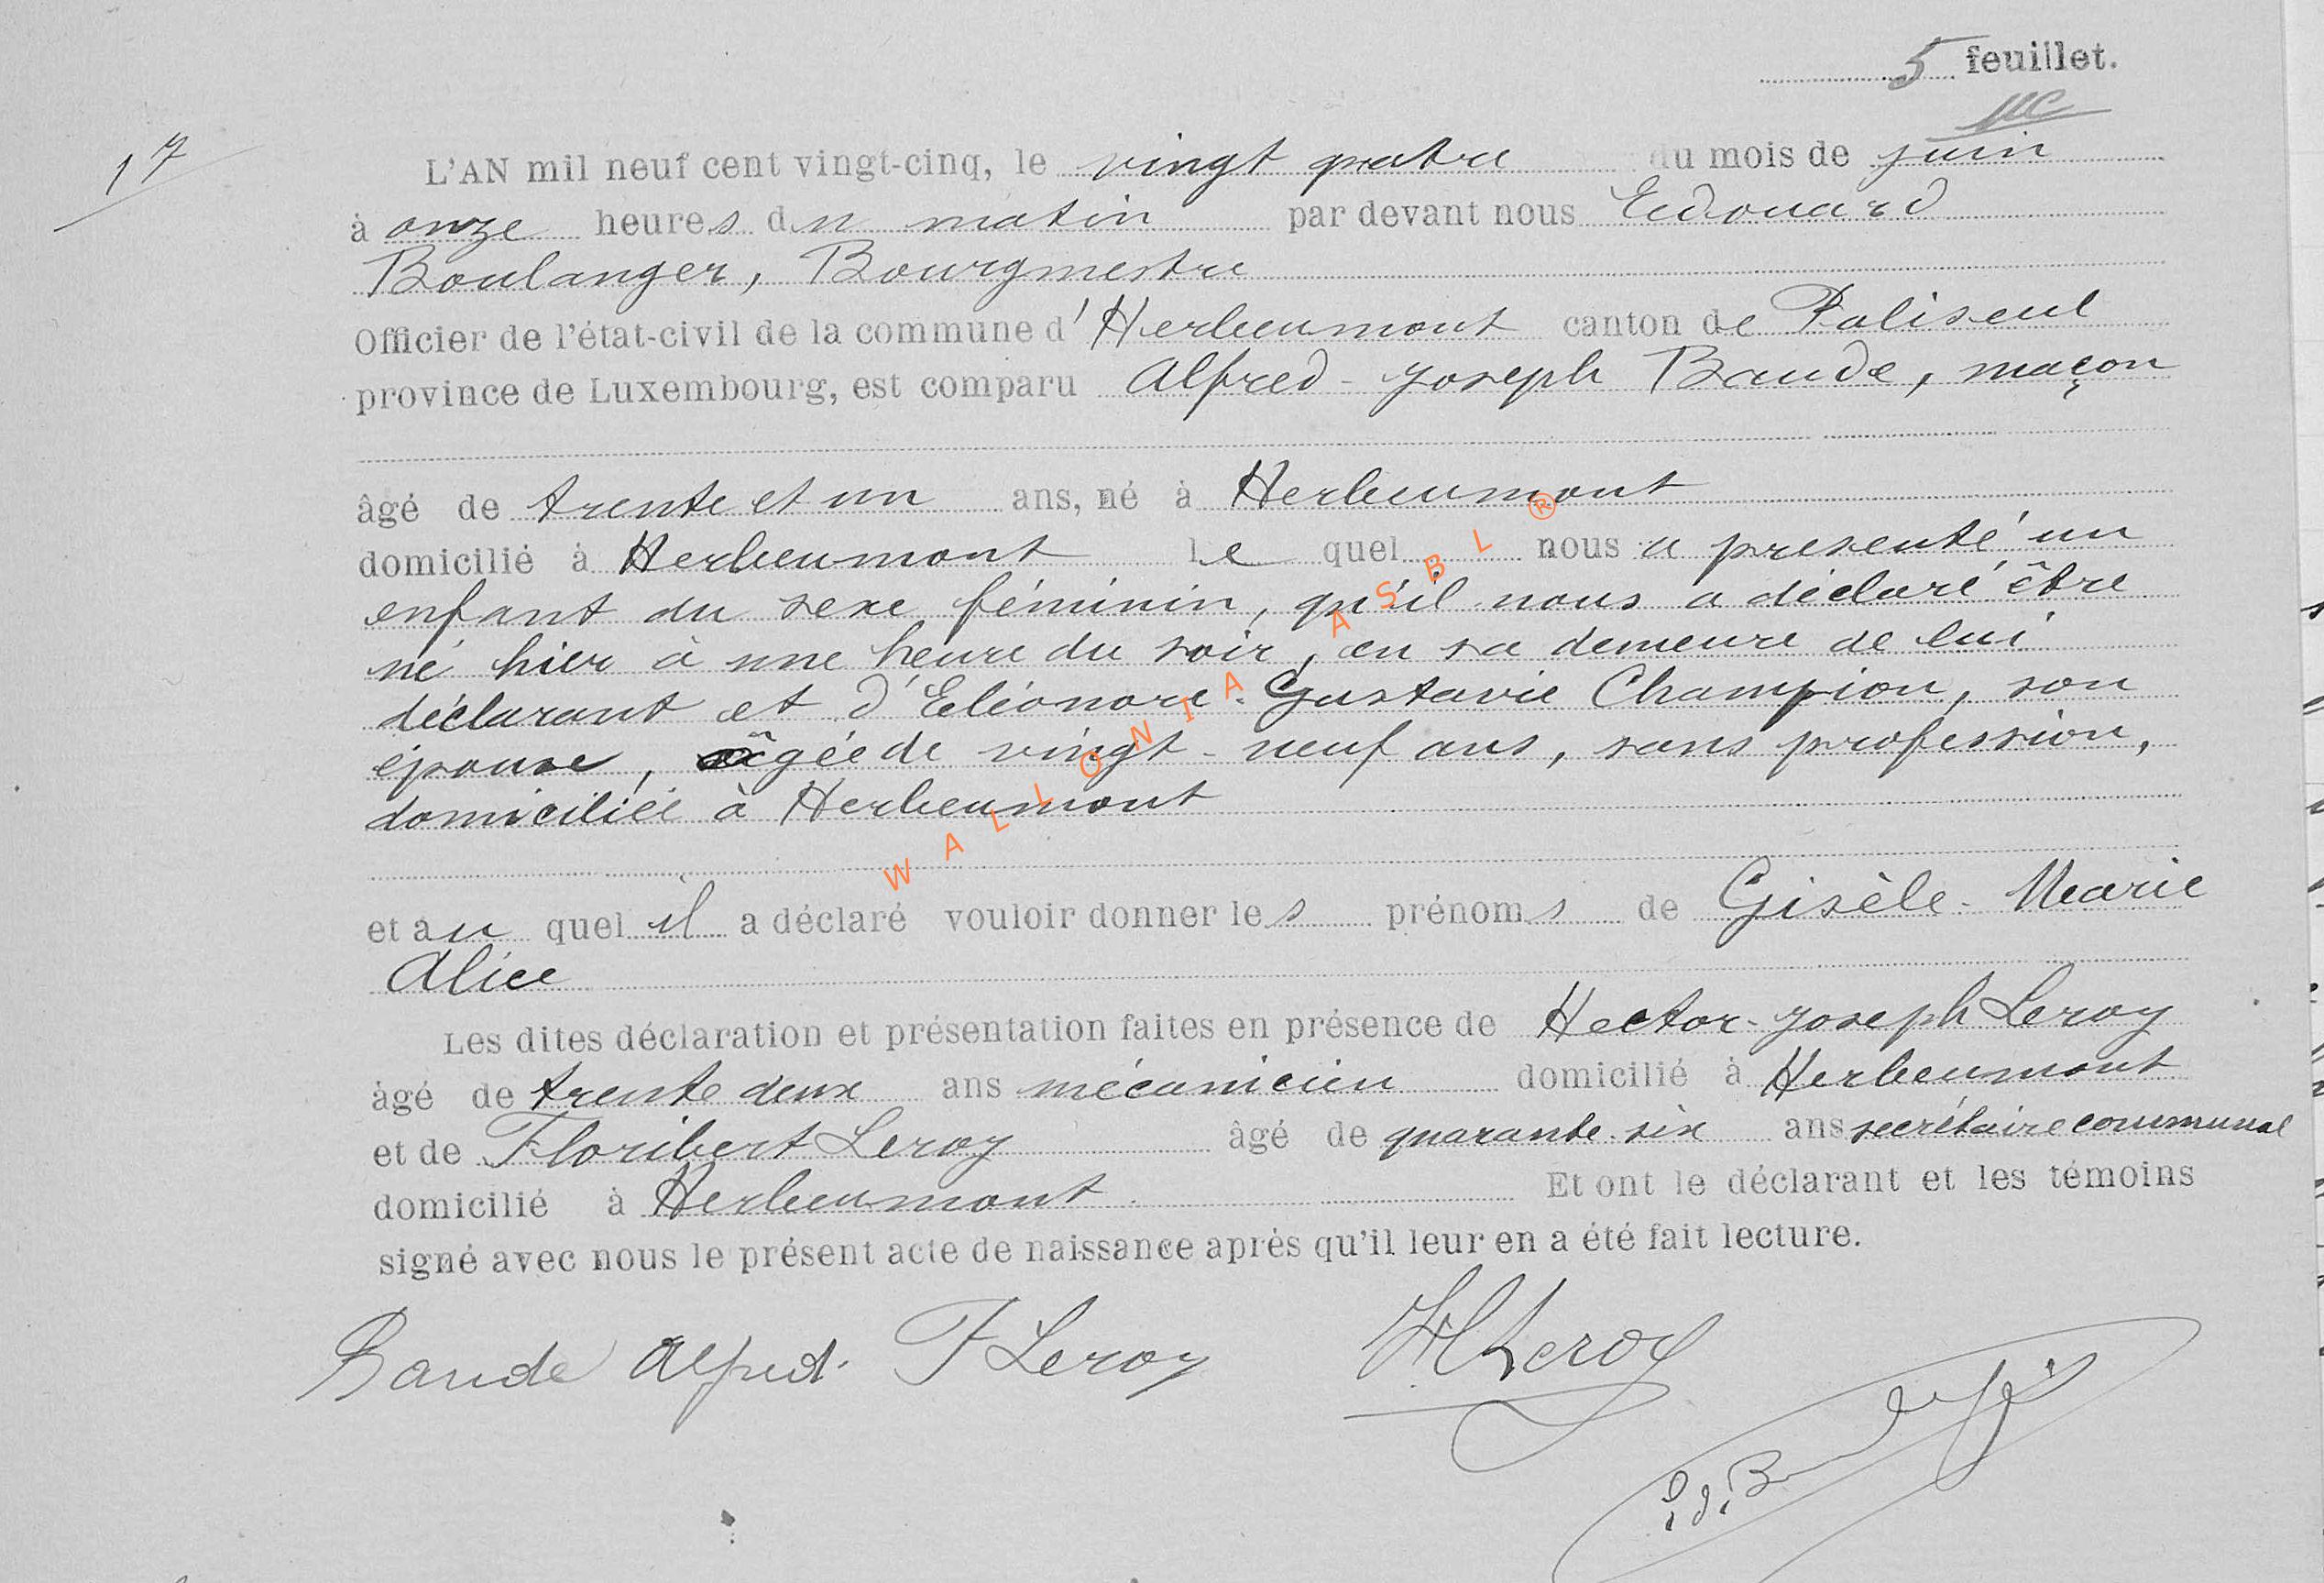 5 feuillet.
17
L'AN mil neuf cent vingt-cinq, le vingt quatre du mois de juin
à onze heures du matin par devant nous Edouard
Boulanger, Bourgmestre
Officier de l'état-civil de la commune d'Herbeumont canton de Paliseul
province de Luxembourg, est comparu Alfred-Joseph Baude, maçon
âgé de trente et un ans, né à Herbeumont
domicilié à Herbeumont le quel nous a présenté un
enfant du sexe féminin, qu'il nous a déclaré être
né hier à une heure du soir, en sa demeure de lui
déclarant et d'Eléonore-Gustavie Champion, son
épouse, âgée de vingt-neuf ans, sans profession,
domiciliée à Herbeumont
et au quel il a déclaré vouloir donner les prénoms de Gisèle-Marie
Alice
Les dites déclaration et présentation faites en présence de Hector-Joseph Leroy
âgé de trente deux ans mécanicien domicilié à Herbeumont
et de Floribert Leroy âgé de quarante-six ans secrétaire communal
domicilié à Herbeumont Et ont le déclarant et les témoins
signé avec nous le présent acte de naissance après qu'il leur en a été fait lecture.
Baude Alfred. F Leroy H Leroy
WALLONIA ASBL ®